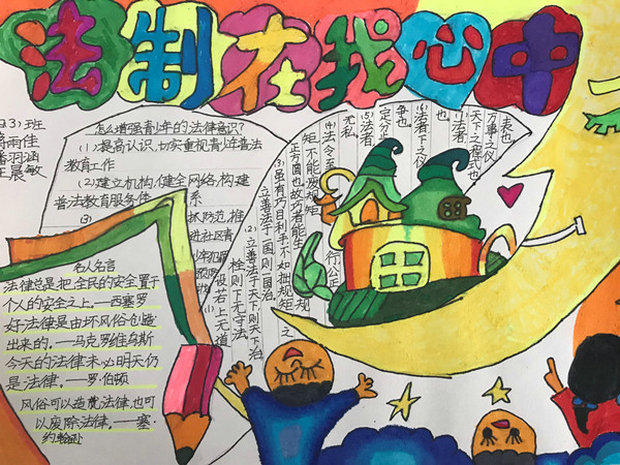 法制在我心中
怎么增强青少年的法律意识?
(1)提高认识,切实重视青少年普法
教育工作
(2)建立机构,健全网络,构建
普法教育服务体系
(3)
名人名言
法律总是把全民的安全置于
个人的安全之上。——西塞罗
好法律是由坏风俗创造
出来的。——马克罗维乌斯
今天的法律未必明天仍
是法律。——罗·伯顿
风俗可以造就法律,也可
以废除法律。——塞·
约翰逊
表也
万事之仪
天下之程式也
(6)法者下之仪
也
(5)法者
定分
争也
无私
(4)法令至
矩不能废规矩
正方圆也故巧者能生规
(3)虽有巧目利手不如拙规矩之
立善法于一国则一国治
(2)立善法于天下则天下治
栓则下无守法
设若上无道
(1)